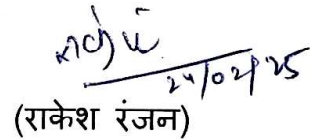 24/02/25
(राकेश रंजन)